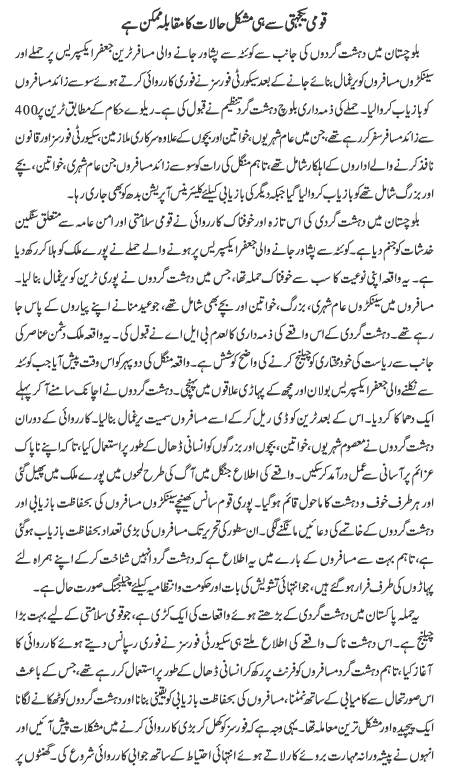 قومی یکجہتی سے ہی مشکل حالات کا مقابلہ ممکن ہے
بلوچستان میں دہشت گردوں کی جانب سے کوئٹہ سے پشاور جانے والی مسافر ٹرین جعفر ایکسپریس پر حملے اور
سینکڑوں مسافروں کو یرغمال بنائے جانے کے بعد سیکورٹی فورسز نے فوری کارروائی کرتے ہوئے سو سے زائد مسافروں
کو بازیاب کروا لیا۔ حملے کی ذمہ داری بلوچ دہشت گرد تنظیم نے قبول کی ہے۔ ریلوے حکام کے مطابق ٹرین پر 400
سے زائد مسافر سفر کر رہے تھے، جن میں عام شہریوں، خواتین اور بچوں کے علاوہ سرکاری ملازمین، سکیورٹی فورسز اور قانون
نافذ کرنے والے اداروں کے اہلکار شامل تھے، تاہم منگل کی رات کو سو سے زائد مسافروں جن عام شہری، خواتین، بچے
اور بزرگ شامل تھے کو بازیاب کروا لیا گیا جبکہ دیگر کی بازیابی کیلئے کلیئرینس آپریشن بدھ کو بھی جاری رہا۔
بلوچستان میں دہشت گردی کی اس تازہ اور خوفناک کارروائی نے قومی سلامتی اور امن عامہ سے متعلق سنگین
خدشات کو جنم دیا ہے۔ کوئٹہ سے پشاور جانے والی جعفر ایکسپریس پر ہونے والے حملے نے پورے ملک کو ہلا کر رکھ دیا
ہے۔ یہ واقعہ اپنی نوعیت کا سب سے خوفناک حملہ تھا، جس میں دہشت گردوں نے پوری ٹرین کو یرغمال بنا لیا۔
مسافروں میں سینکڑوں عام شہری، بزرگ، خواتین اور بچے بھی شامل تھے، جو عید منانے اپنے پیاروں کے پاس جا
رہے تھے۔ دہشت گردی کے اس واقعے کی ذمہ داری کالعدم بی ایل اے نے قبول کی۔ یہ واقعہ ملک دشمن عناصر کی
جانب سے ریاست کی خودمختاری کو چیلنج کرنے کی واضح کوشش ہے۔ واقعہ منگل کی دوپہر کو اس وقت پیش آیا جب کوئٹہ
سے نکلنے والی جعفر ایکسپریس بولان اور مچھ کے پہاڑی علاقوں میں پہنچی۔ دہشت گردوں نے اچانک سامنے آ کر پہلے
ایک دھماکا کر دیا۔ اس کے بعد ٹرین کو ڈی ریل کر کے اسے مسافروں سمیت یرغمال بنا لیا۔ کارروائی کے دوران
دہشت گردوں نے معصوم شہریوں، خواتین، بچوں اور بزرگوں کو انسانی ڈھال کے طور پر استعمال کیا، تاکہ اپنے ناپاک
عزائم پر آسانی سے عمل درآمد کر سکیں۔ واقعے کی اطلاع جنگل میں آگ کی طرح لمحوں میں پورے ملک میں پھیل گئی
اور ہر طرف خوف و دہشت کا ماحول قائم ہو گیا۔ پوری قوم سانس کھینچے سینکڑوں مسافروں کی بحفاظت بازیابی اور
دہشت گردوں کے خاتمے کی دعائیں مانگنے لگی۔ ان سطور کی تحریر تک مسافروں کی بڑی تعداد بحفاظت بازیاب ہو گئی
ہے، تاہم بہت سے مسافروں کے بارے میں یہ اطلاع ہے کہ دہشت گرد انہیں شناخت کر کے اپنے ہمراہ لئے
پہاڑوں کی طرف فرار ہو گئے ہیں، جو انتہائی تشویش کی بات اور حکومت و انتظامیہ کیلئے چیلنجنگ صورت حال ہے۔
یہ حملہ پاکستان میں دہشت گردی کے بڑھتے ہوئے واقعات کی ایک کڑی ہے، جو قومی سلامتی کے لیے بہت بڑا
چیلنج ہے۔ اس دہشت ناک واقعے کی اطلاع ملتے ہی سیکورٹی فورسز نے فوری رسپانس دیتے ہوئے کارروائی کا
آغاز کیا، تاہم دہشت گرد مسافروں کو فرنٹ پر رکھ کر انسانی ڈھال کے طور پر استعمال کر رہے تھے، جس کے باعث
اس صورتحال سے کامیابی کے ساتھ نمٹنا، مسافروں کی بحفاظت بازیابی کو یقینی بنانا اور دہشت گردوں کو ٹھکانے لگانا
ایک پیچیدہ اور مشکل ترین معاملہ تھا۔ یہی وجہ ہے کہ فورسز کو کھل کر بڑی کارروائی کرنے میں مشکلات پیش آئیں اور
انہوں نے پیشہ ورانہ مہارت بروئے کار لاتے ہوئے انتہائی احتیاط کے ساتھ جوابی کارروائی شروع کی۔ گھنٹوں پر